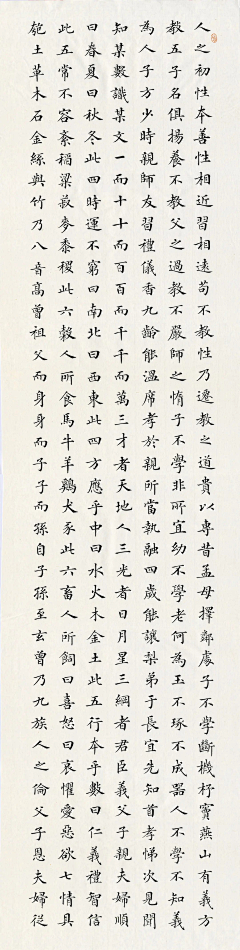 人之初性本善性相近習相遠苟不教性乃遷教之道貴以專昔孟母擇鄰處子不學斷機杼竇燕山有義方
教五子名俱揚養不教父之過教不嚴師之惰子不學非所宜幼不學老何為玉不琢不成器人不學不知義
為人子方少時親師友習禮儀香九齡能溫席孝於親所當執融四歲能讓梨弟于長宜先知首孝悌次見聞
知某數識某文一而十十而百百而千千而萬三才者天地人三光者日月星三綱者君臣義父子親夫婦順
曰春夏曰秋冬此四時運不窮曰南北曰西東此四方應乎中曰水火木金土此五行本乎數曰仁義禮智信
此五常不容紊稻粱菽麥黍稷此六穀人所食馬牛羊鷄犬豕此六畜人所飼曰喜怒曰哀懼愛惡欲七情具
匏土革木石金絲與竹乃八音高曾祖父而身身而子子而孫自子孫至玄曾乃九族人之倫父子恩夫婦從